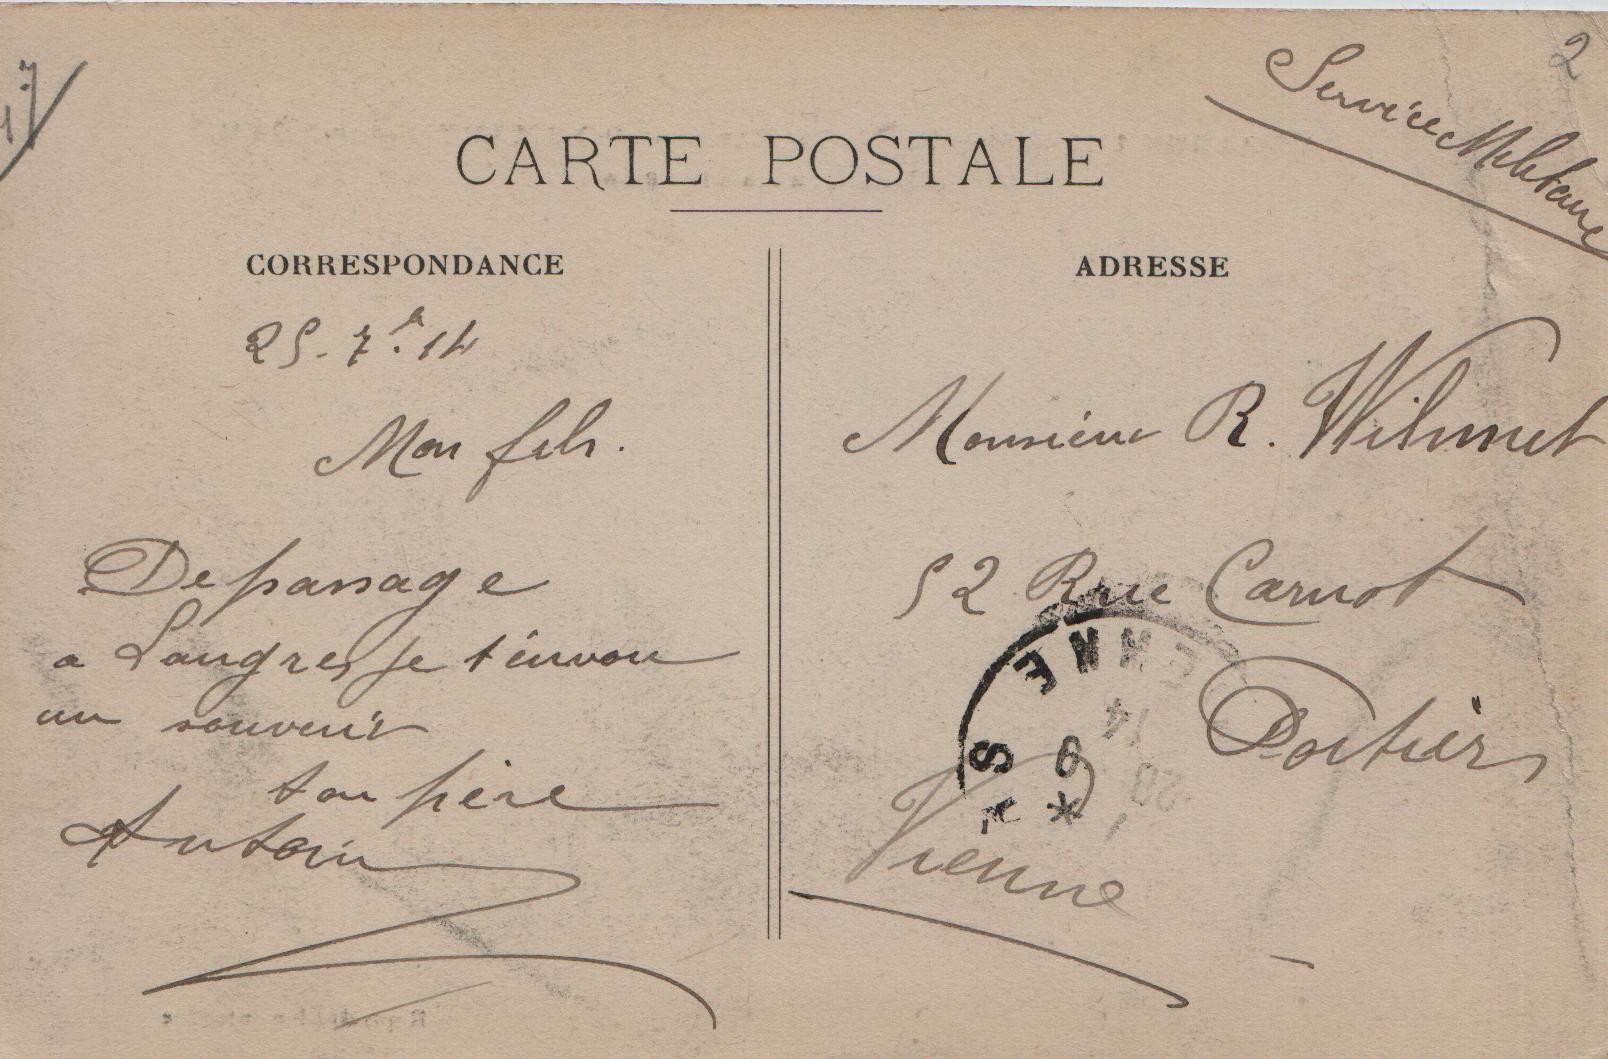 17
2
Service Militaire
CARTE POSTALE
CORRESPONDANCE
25-7.14
Mon fils.
De passage
a Langres je t'envoie
un souvenir
ton père
Antoin
ADRESSE
Monsieur R. Wilmet
52 Rue Carnot
Poitiers
Vienne
ENNE
14
9
20
S
*